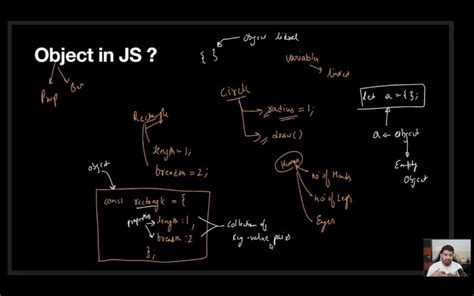 Object in JS ?
{ } → object literal
Variables
linked
Prop
Circle
radius = 1;
draw()
let a = {};
a ← object
Empty
Object
Rectangle
length = 1;
breadth = 2;
Human
no of Hands
no of Legs
Eyes
object
const rectangle = {
properties
length : 1,
breadth : 2
};
collection of
key-value pairs